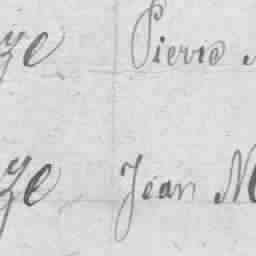 ze Pierre
ze Jean M